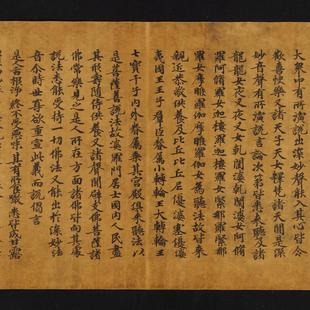 大眾中有所演說出深妙聲能入其心皆令
歡喜快樂又諸天子天女釋梵諸天聞是深
妙音聲有所演說言論次第皆悉來聽及諸
龍龍女夜叉夜叉女乾闥婆乾闥婆女阿脩
羅阿脩羅女迦樓羅迦樓羅女緊那羅緊那
羅女摩睺羅伽摩睺羅伽女為聽法故皆來
親近恭敬供養及比丘比丘尼優婆塞優婆
夷國王王子群臣眷屬小轉輪王大轉輪王
七寶千子內外眷屬乘其宮殿俱來聽法以
是菩薩善說法故婆羅門居士國內人民盡
其形壽隨侍供養又諸聲聞辟支佛菩薩諸
佛常樂見之是人所在方面諸佛皆向其處
說法悉能受持一切佛法又能出於深妙法
音尒時世尊欲重宣此義而說偈言
是人舌根淨 終不受惡味 其有所食噉 悉皆成甘露